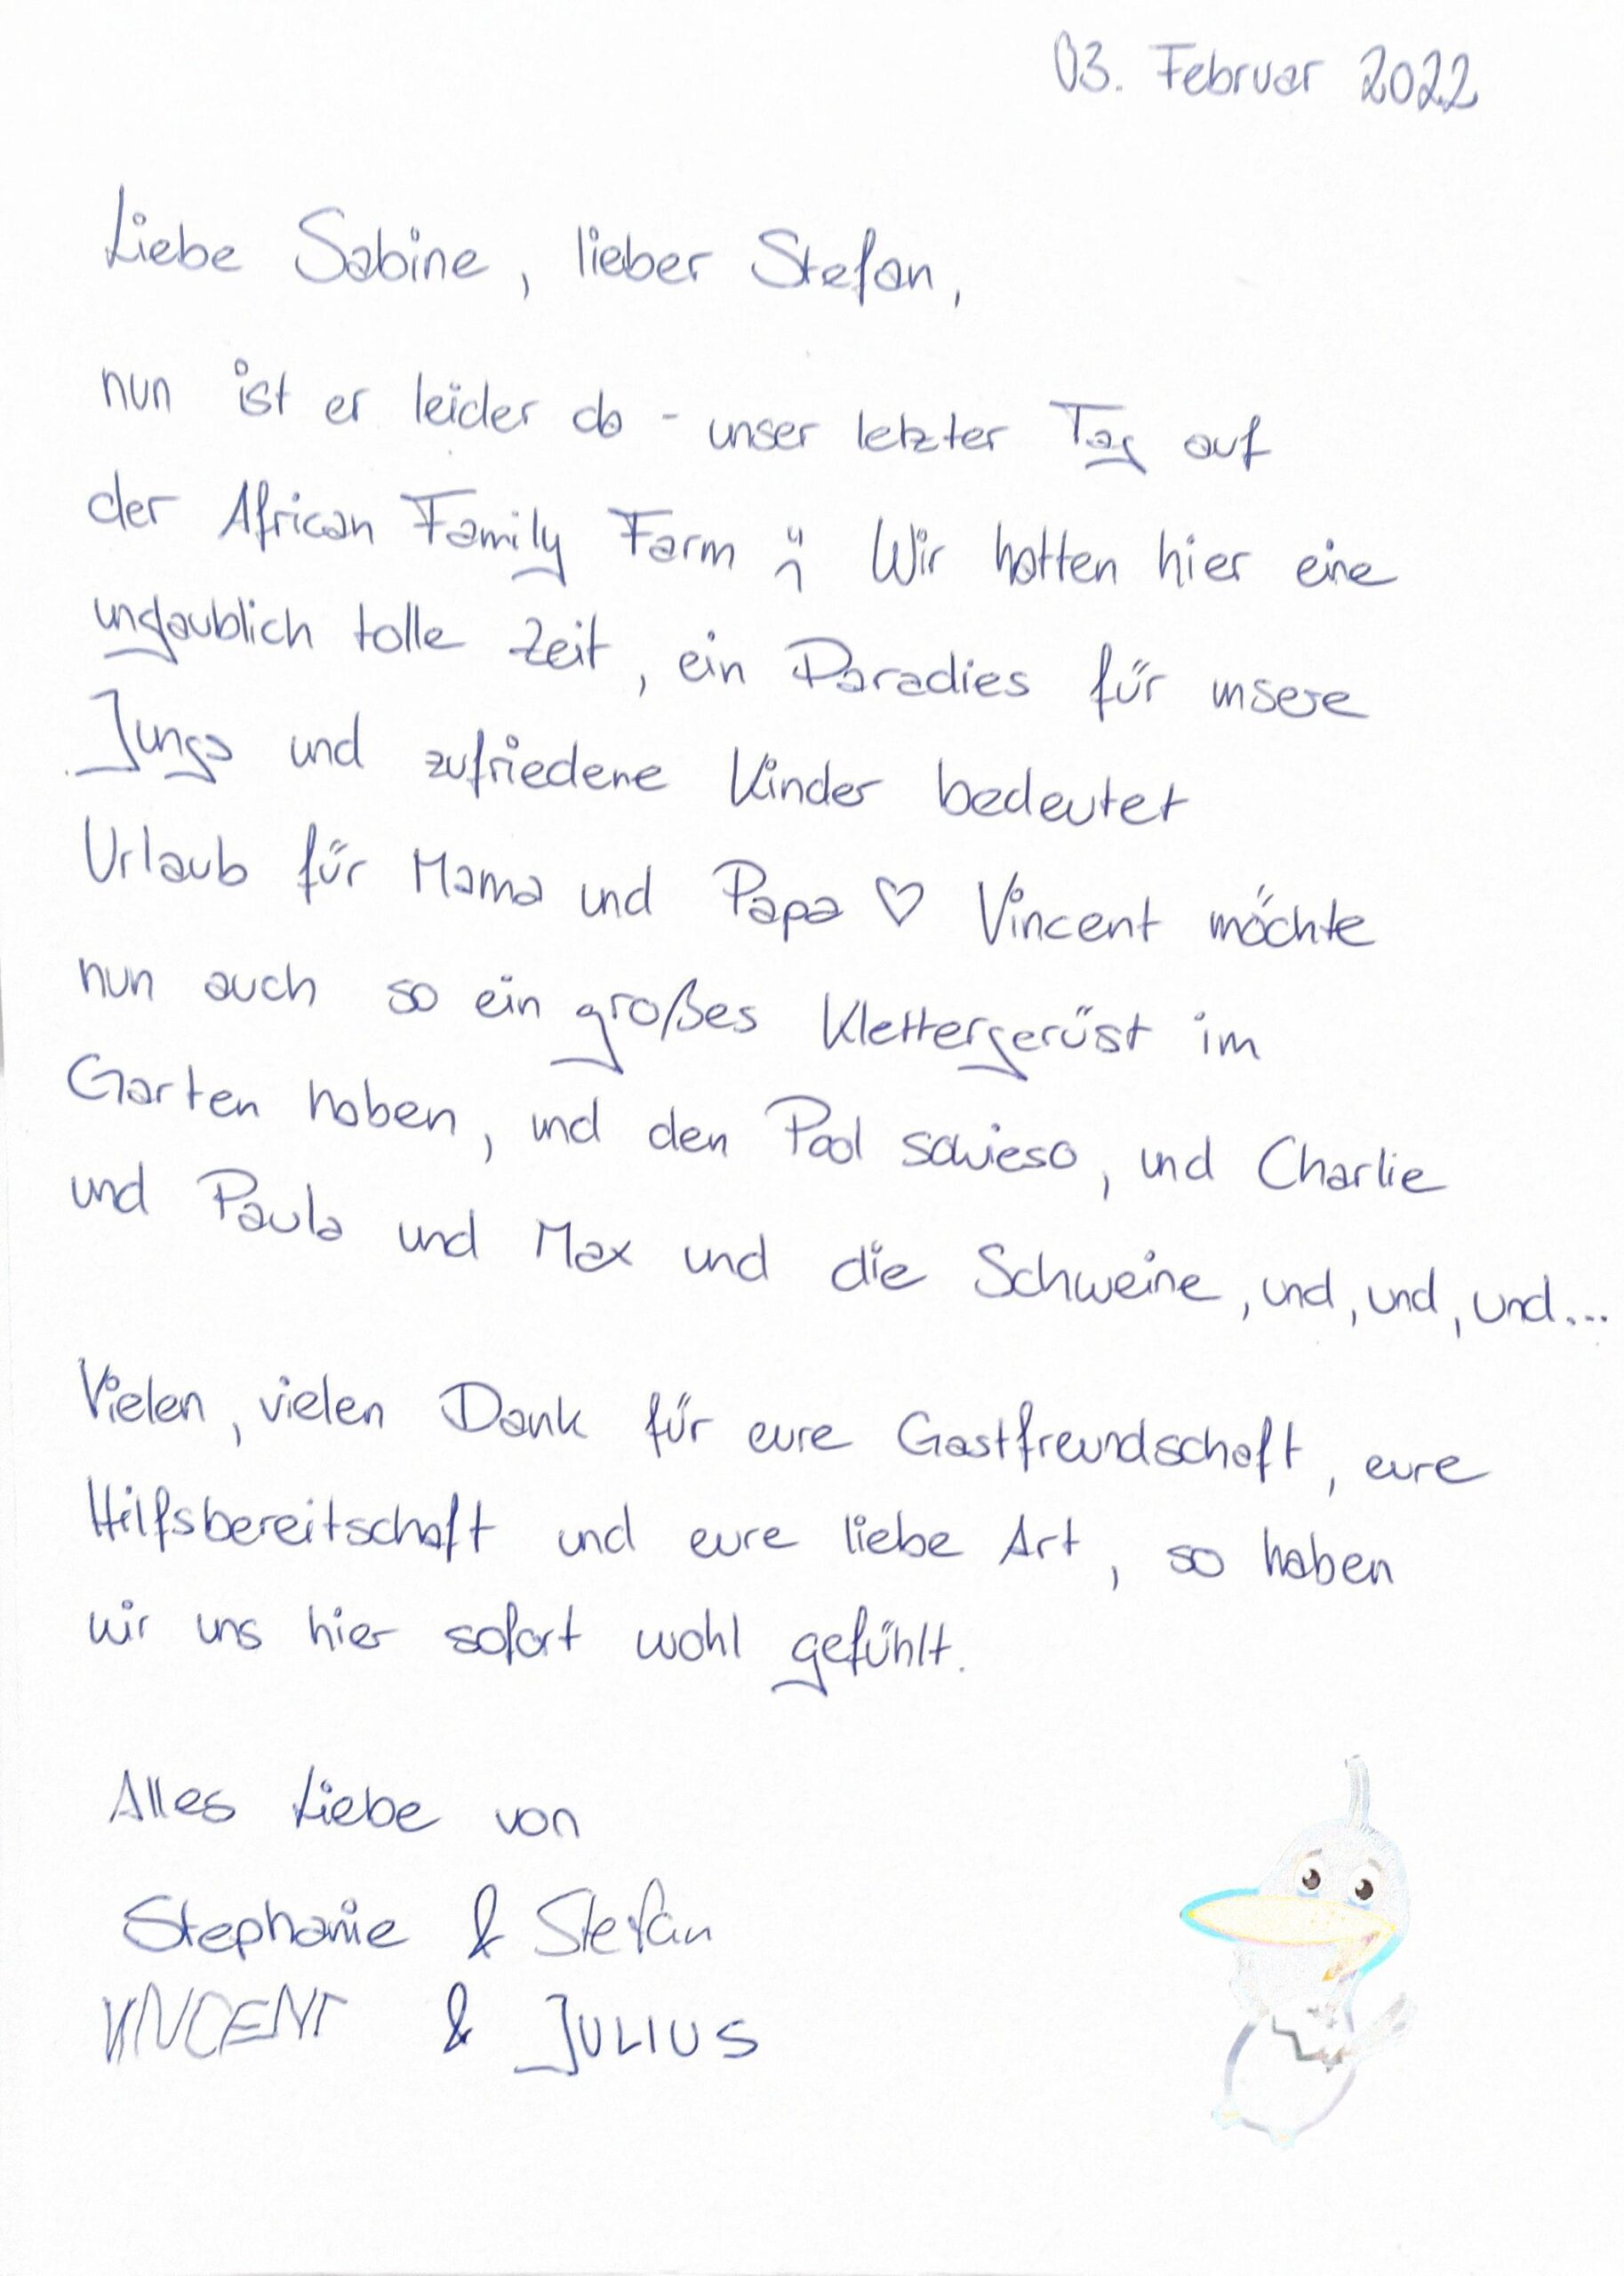 03. Februar 2022
Liebe Sabine, lieber Stefan,
nun ist er leider da - unser letzter Tag auf
der African Family Farm :( Wir hatten hier eine
unglaublich tolle Zeit, ein Paradies für unsere
Jungs und zufriedene Kinder bedeutet
Urlaub für Mama und Papa ♡ Vincent möchte
nun auch so ein großes Klettergerüst im
Garten haben, und den Pool sowieso, und Charlie
und Paula und Max und die Schweine, und, und, und...
Vielen, vielen Dank für eure Gastfreundschaft, eure
Hilfsbereitschaft und eure liebe Art, so haben
wir uns hier sofort wohl gefühlt.
Alles Liebe von
Stephanie & Stefan
VINCENT & JULIUS